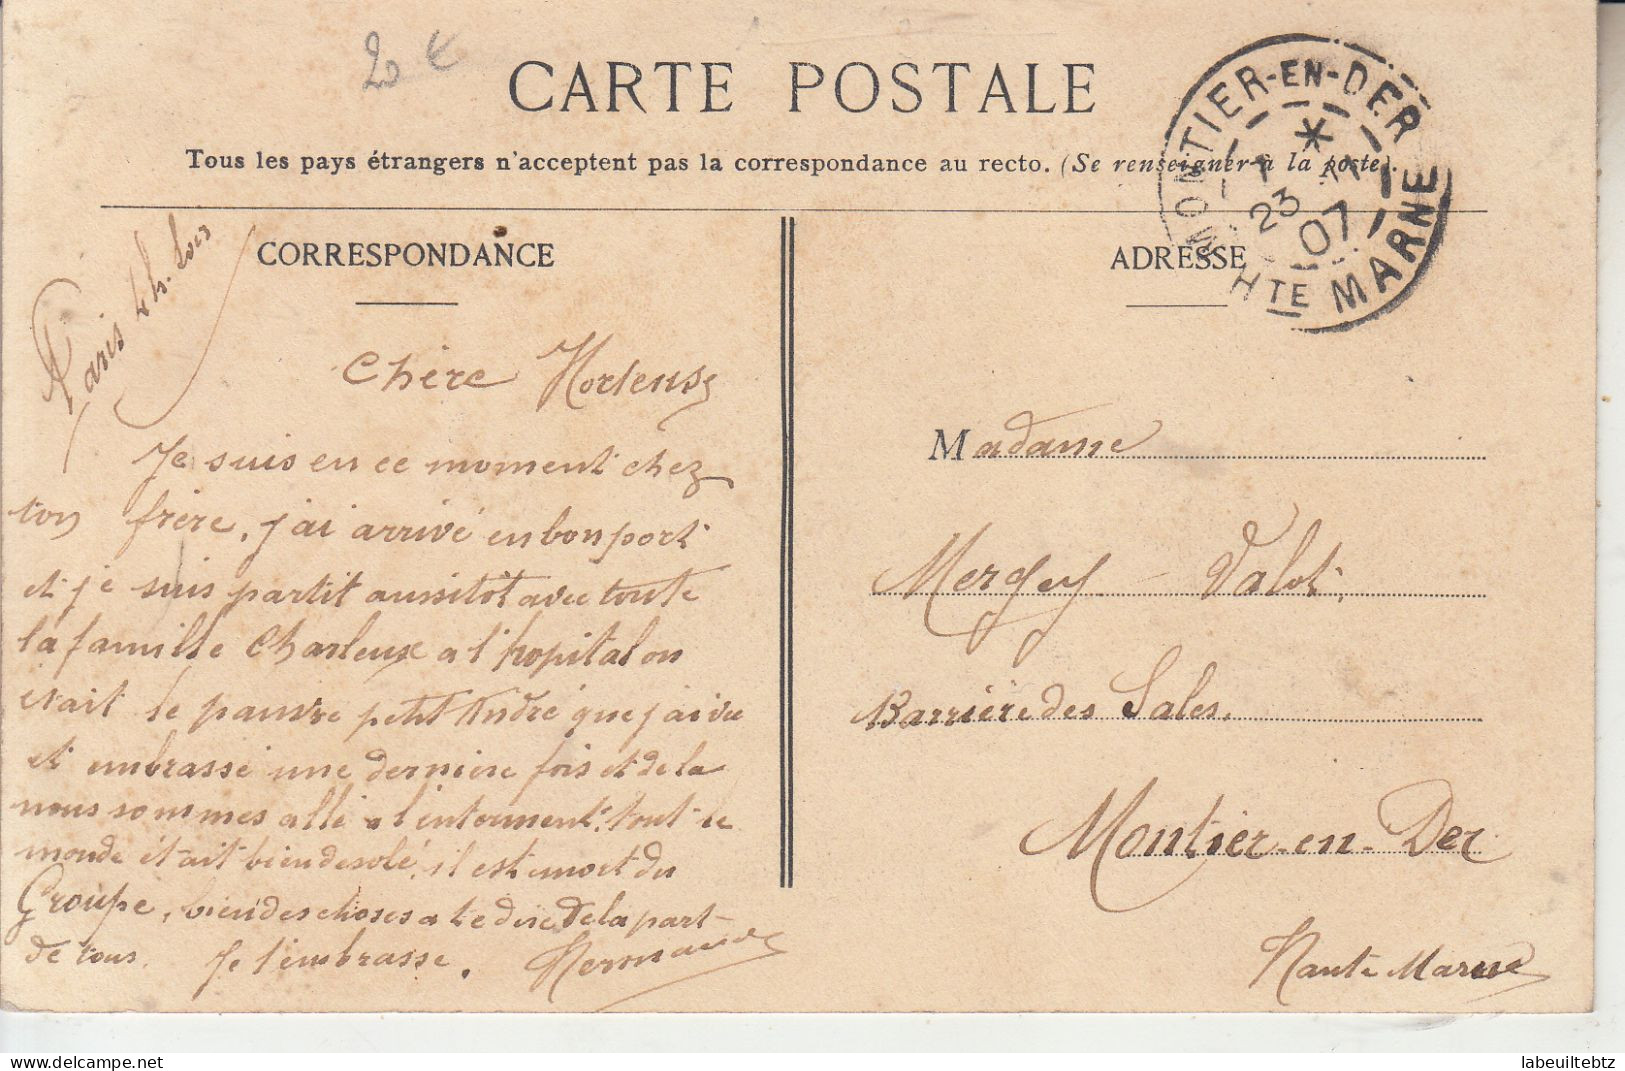 20 €
CARTE POSTALE
Tous les pays étrangers n'acceptent pas la correspondance au recto. (Se renseigner à la poste).
MONTIER-EN-DER
23
07
HTE MARNE
CORRESPONDANCE
Paris 4 h. soir
Chère Hortense
Je suis en ce moment chez
ton frère, j'ai arrivé en bon port
et je suis partit aussitôt avec toute
la famille Charleux a l'hopital on
était le pauvre petit André que j'ai vu
et embrassé une dernière fois et de la
nous sommes allé a l'enterrement, tout le
monde était bien desolé, il est mort du
Groupe, bien des choses a te dire de la part
de tous. Je t'embrasse. Hermance
ADRESSE
Madame
Mergey - Valot,
Barrière des Sales,
Montier-en-Der
Haute Marne
labeuiltebtz